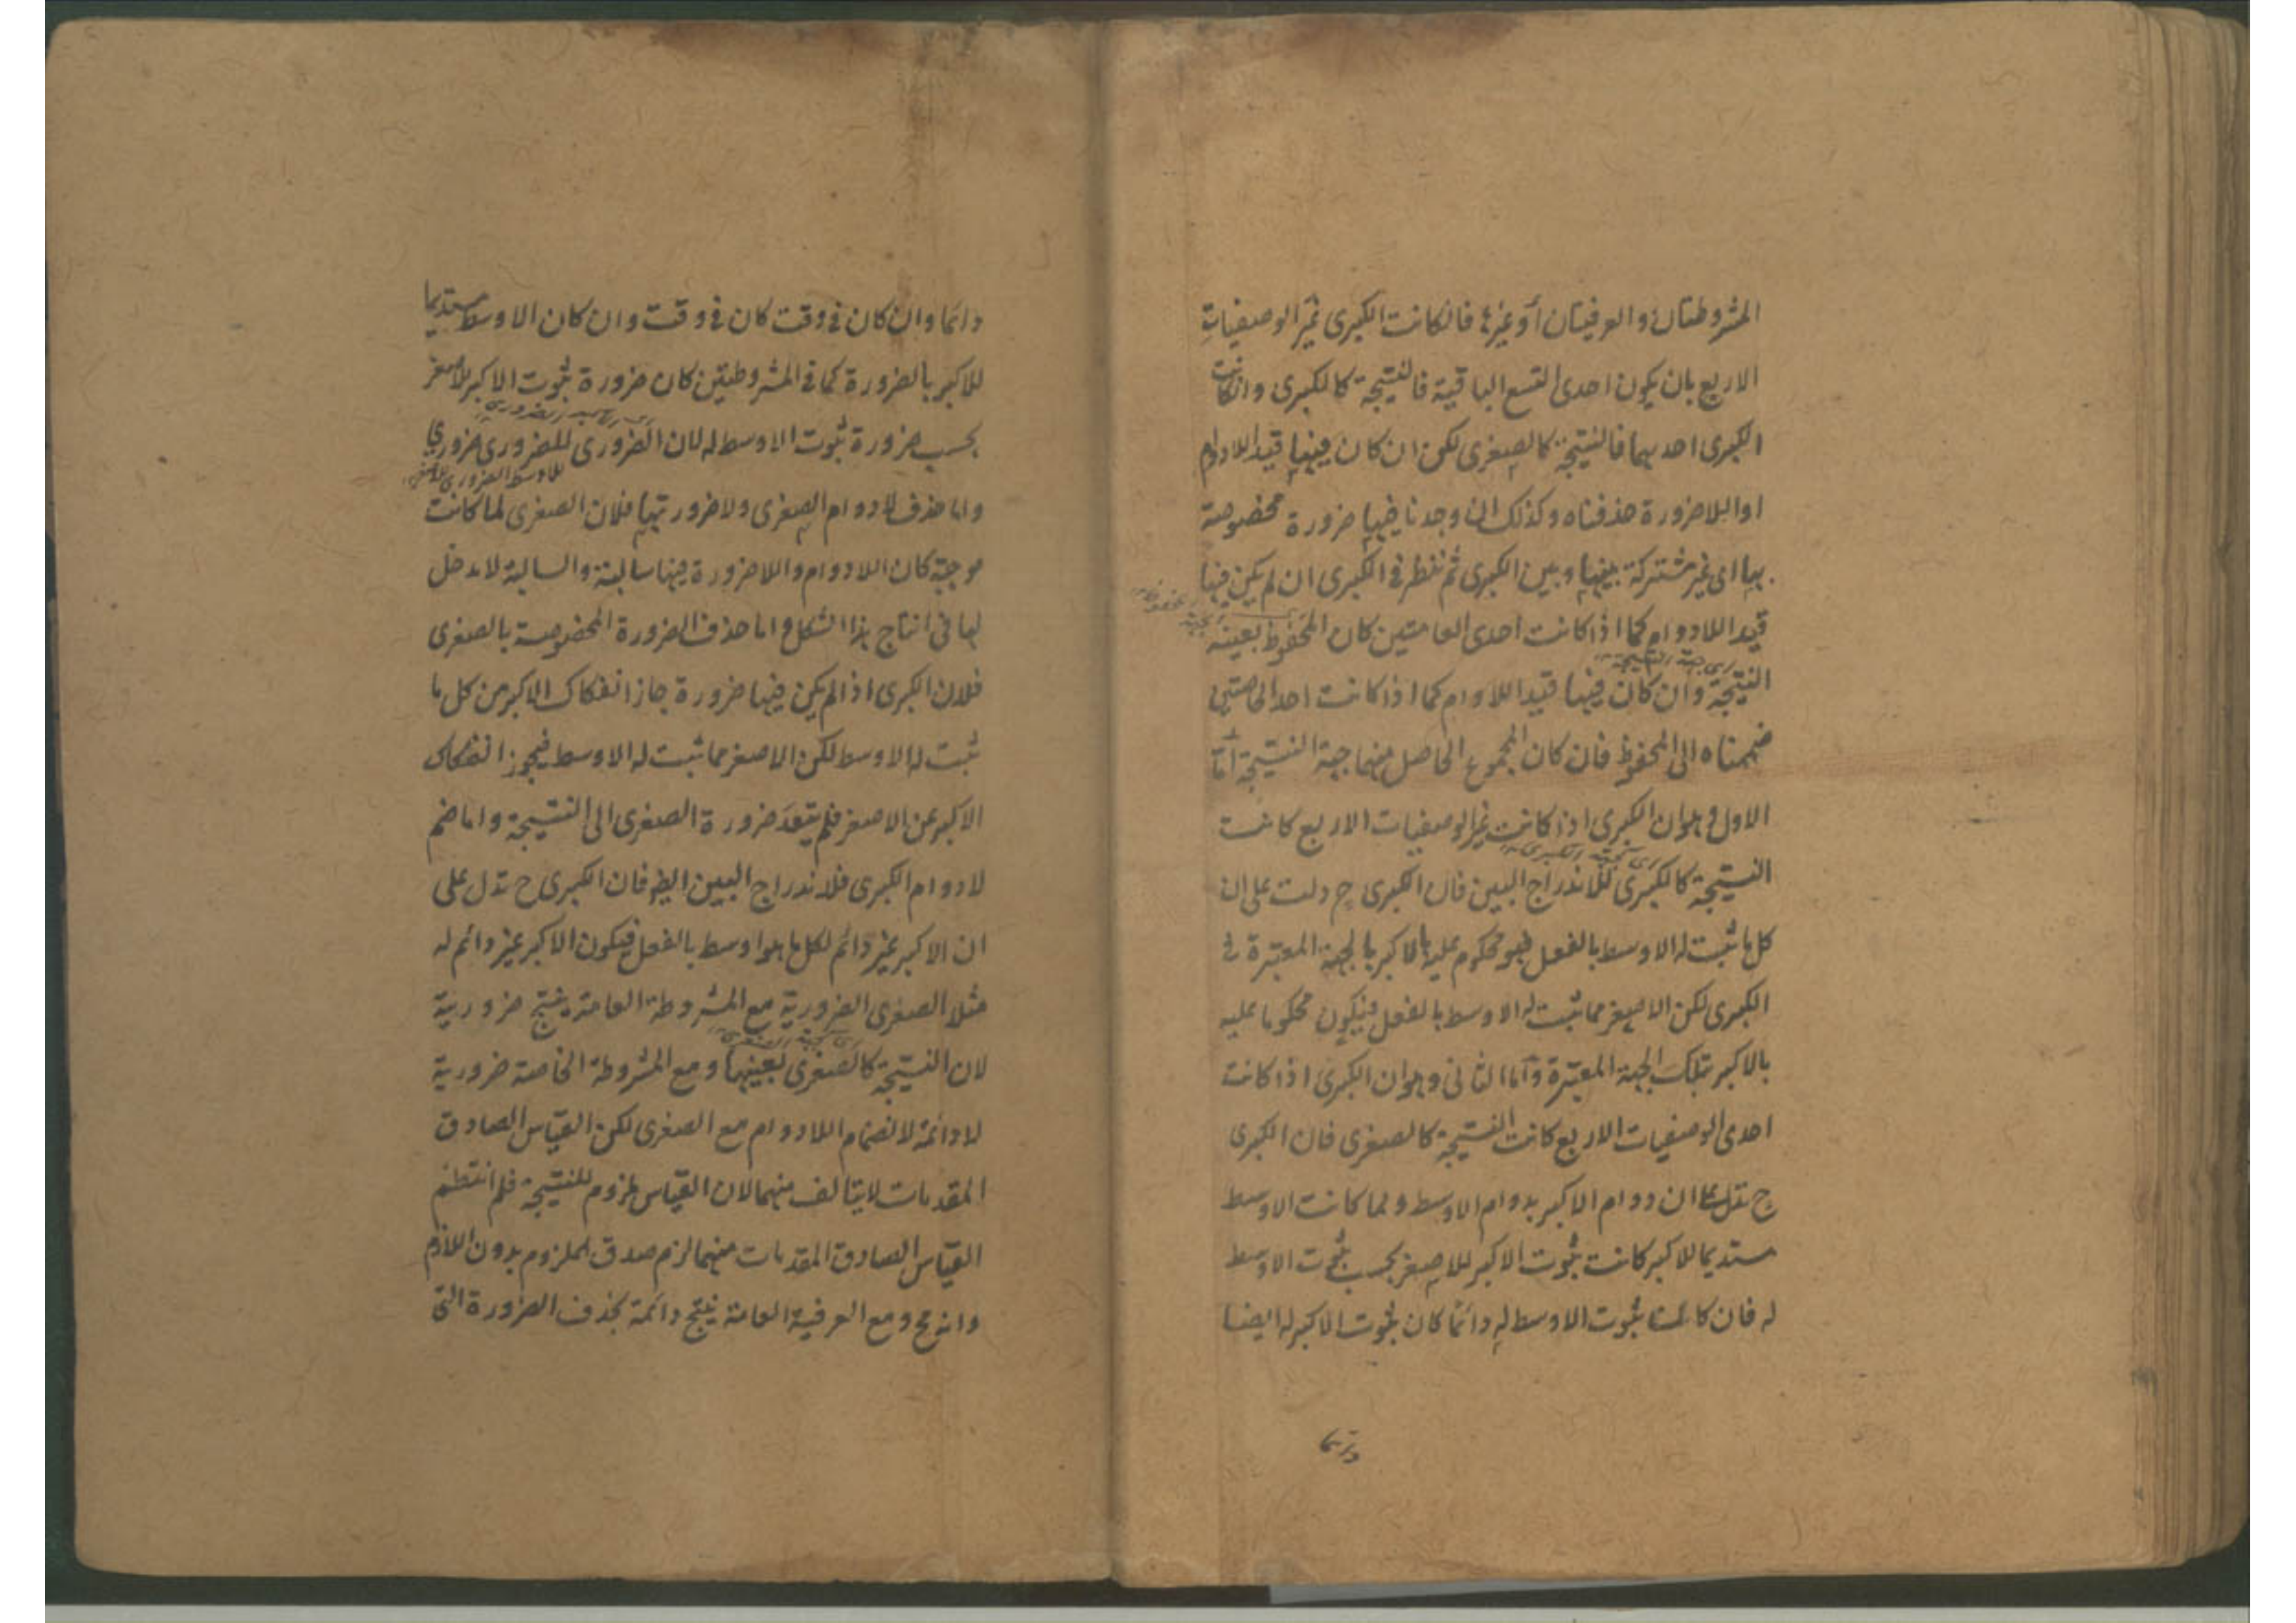 المشروطتان والعرفيتان أو غيرها فانكانت الكبرى غير الوصفيات
الاربع بان يكون احدى التسع الباقية فالنتيجة كالكبرى وانكانت
الكبرى احديهما فالنتيجة كالصغرى لكن ان كان فيها قيد اللادوام
او اللاضرورة حذفناه وكذلك ان وجدنا فيها ضرورة مخصوصة
بها اى غير مشتركة بينها وبين الكبرى ثم ننظر فى الكبرى ان لم يكن فيها
قيد اللادوام كما اذا كانت احدى العامتين كان المحفوظ بعينه
اى جهة النتيجة
النتيجة وان كان فيها قيد اللادوام كما اذا كانت احد الخاصتين
ضممناه الى المحفوظ فان كان المجموع الحاصل منهما جهة النتيجة اما
الاول وهو ان الكبرى اذا كانت غير الوصفيات الاربع كانت
النتيجة كالكبرى للاندراج البين فان الكبرى ح دلت على ان
كل ما ثبت له الاوسط بالفعل فهو محكوم عليه بالاكبر بالجهة المعتبرة فى
الكبرى لكن الاصغر مما ثبت له الاوسط بالفعل فيكون محكوما عليه
بالاكبر بتلك الجهة المعتبرة وأما الثانى وهو ان الكبرى اذا كانت
احدى الوصفيات الاربع كانت النتيجة كالصغرى فان الكبرى
ح تدل على ان دوام الاكبر بدوام الاوسط ولما كانت الاوسط
مستديما للاكبر كانت ثبوت الاكبر للاصغر بحسب ثبوت الاوسط
له فان كانت ثبوت الاوسط له دائما كان ثبوت الاكبر له ايضا
دائما وان كان فى وقت كان فى وقت وان كان الاوسط مستديما
للاكبر بالضرورة كما فى المشروطتين كان ضرورة ثبوت الاكبر للاصغر
بحسب ضرورة ثبوت الاوسط له لان الضرورى للضرورى ضرورى
للاوسط الضرورى للاصغر
واما حذف لادوام الصغرى ولاضرورتها فلان الصغرى لما كانت
موجبة كان اللادوام واللاضرورة فيها سالبة والسالبة لا مدخل
لها فى انتاج هذا الشكل واما حذف الضرورة المخصوصة بالصغرى
فلان الكبرى اذا لم يكن فيها ضرورة جاز انفكاك الاكبر من كل ما
ثبت له الاوسط لكن الاصغر مما ثبت له الاوسط فيجوز انفكاك
الاكبر عن الاصغر فلم يتعد ضرورة الصغرى الى النتيجة واما ضم
لادوام الكبرى فلاندراج البين ايض فان الكبرى ح تدل على
ان الاكبر غير دائم لكل ما هو اوسط بالفعل فيكون الاكبر غير دائم له
مثلا الصغرى الضرورية مع المشروطة العامة ينتج ضرورية
لان النتيجة كالصغرى بعينها ومع المشروطة الخاصة ضرورية
لادائمة لانضمام اللادوام مع الصغرى لكن القياس الصادق
المقدمات لا يتالف منهما لان القياس ملزوم للنتيجة فلم انتظم
القياس الصادق المقدمات منهما لزم صدق الملزوم بدون اللازم
وانه مح ومع العرفية العامة ينتج دائمة بحذف الضرورة التى